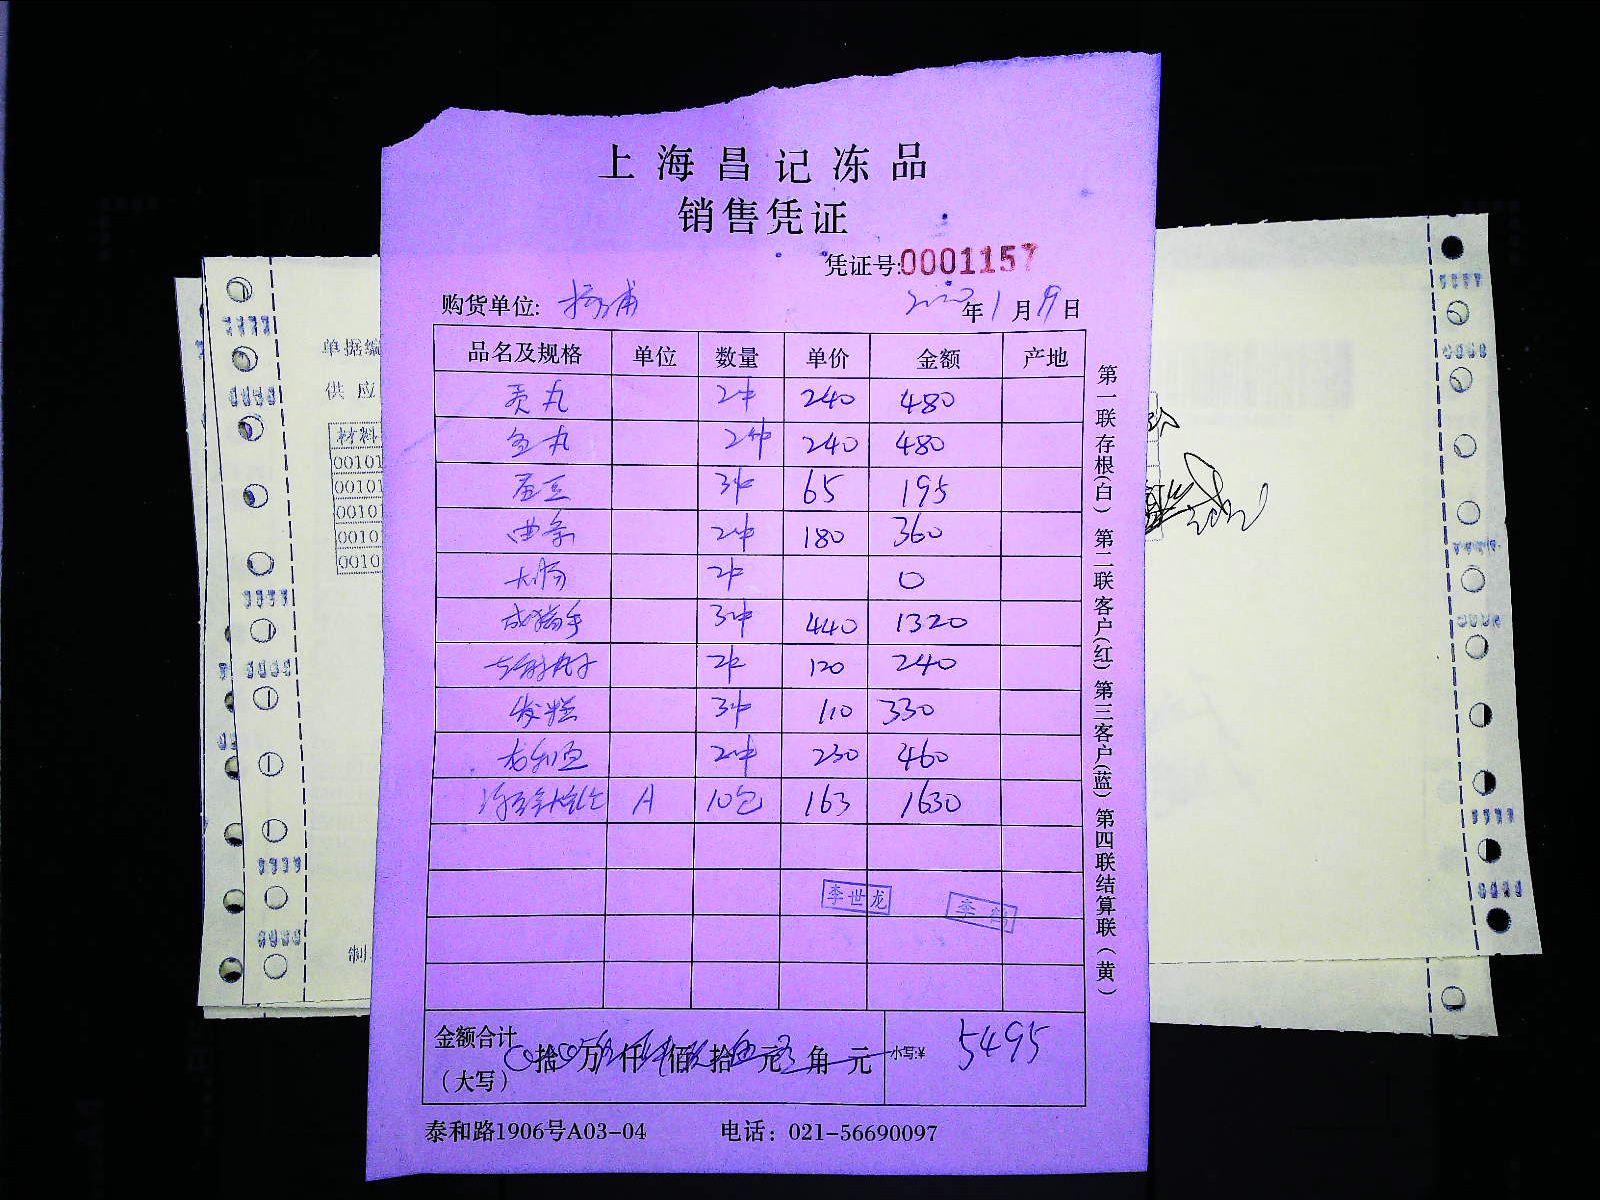 上海昌记冻品
销售凭证
凭证号:0001157
购货单位: 杨浦 2020年1月19日
品名及规格 单位 数量 单价 金额 产地
贡丸 2件 240 480
鱼丸 2件 240 480
蚕豆 3件 65 195
2件 180 360
大肠 2件 0
3件 440 1320
2件 120 240
发糕 3件 110 330
2件 230 460
A 10包 163 1630
李世龙
李
金额合计
(大写) 拾 万 仟 佰 拾 元 角 元 小写:¥ 5495
泰和路1906号A03-04 电话：021-56690097
第一联存根(白) 第二联客户(红) 第三客户(蓝) 第四联结算联(黄)
单据编
供应
材料
00101
00101
00101
00101
00101
制